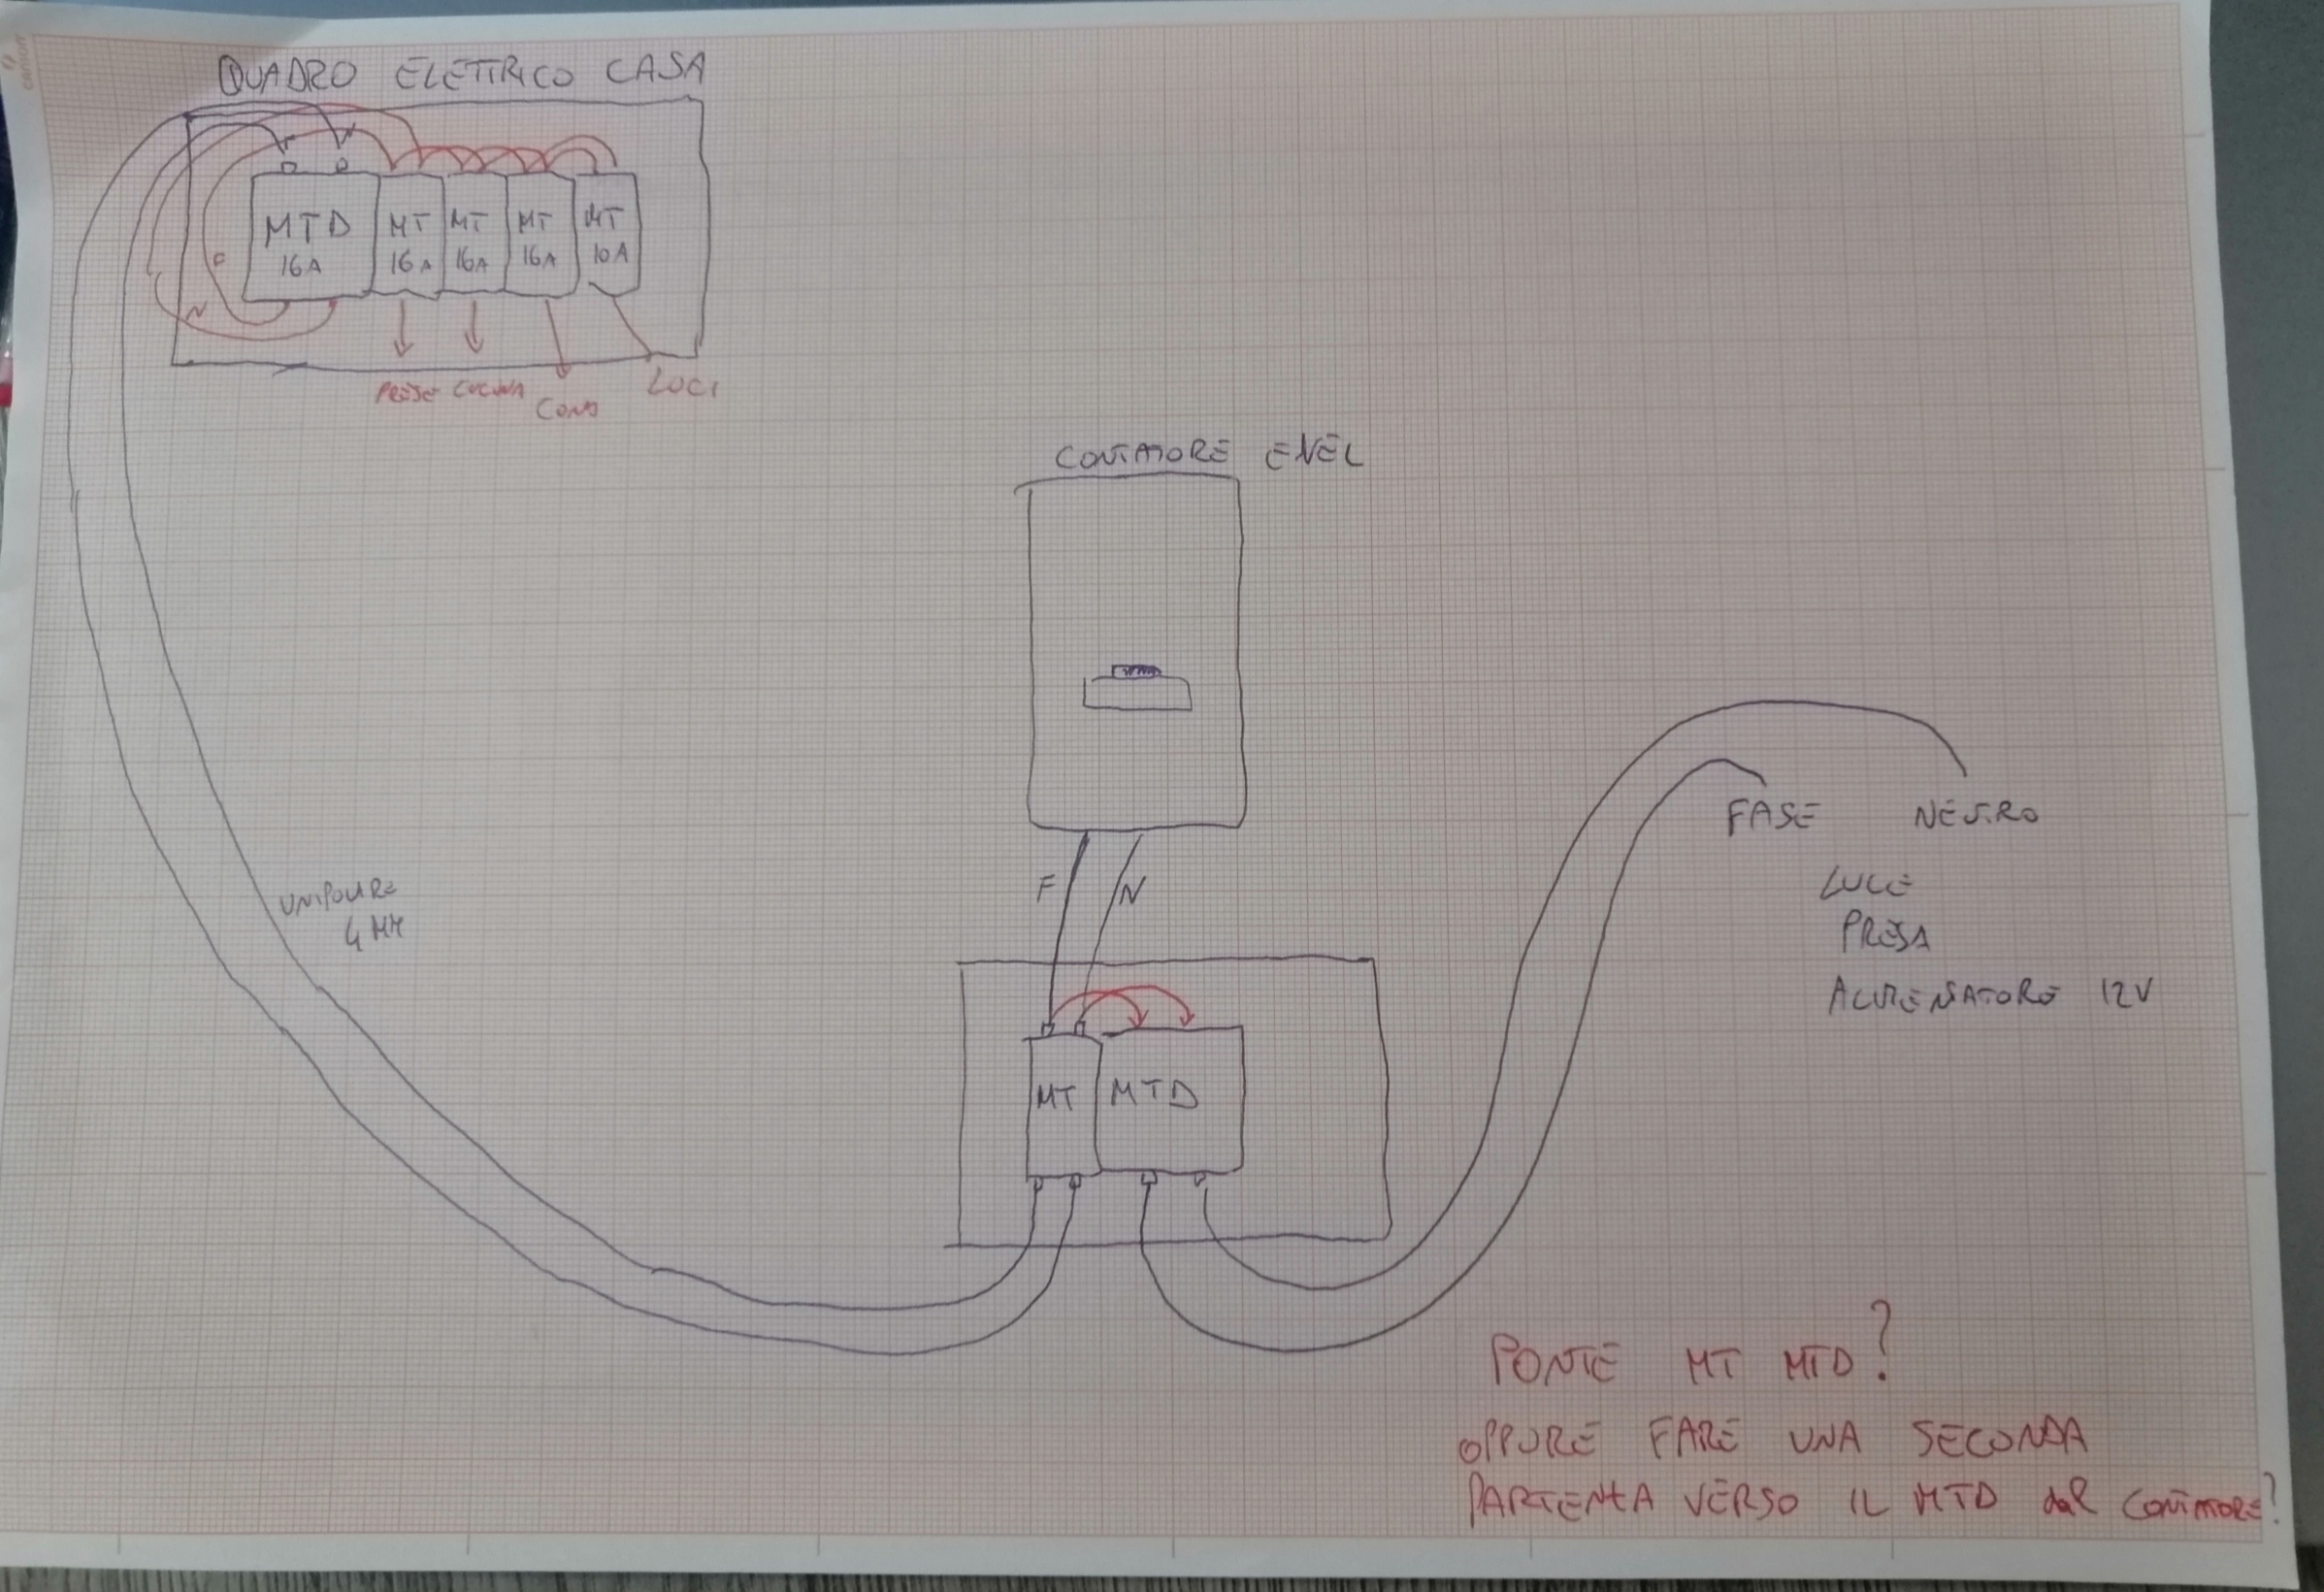 QUADRO ELETTRICO CASA
F N
MTD
16A
MT
16A
MT
16A
MT
16A
MT
10A
F
N
PRESE CUCINA
COND
LUCI
CONTATORE ENEL
F N
UNIPOLARE
4 MM
MT MTD
FASE NEUTRO
LUCE
PRESA
ALIMENTATORE 12V
PONTE MT MTD?
OPPURE FARE UNA SECONDA
PARTENZA VERSO IL MTD dal CONTATORE?